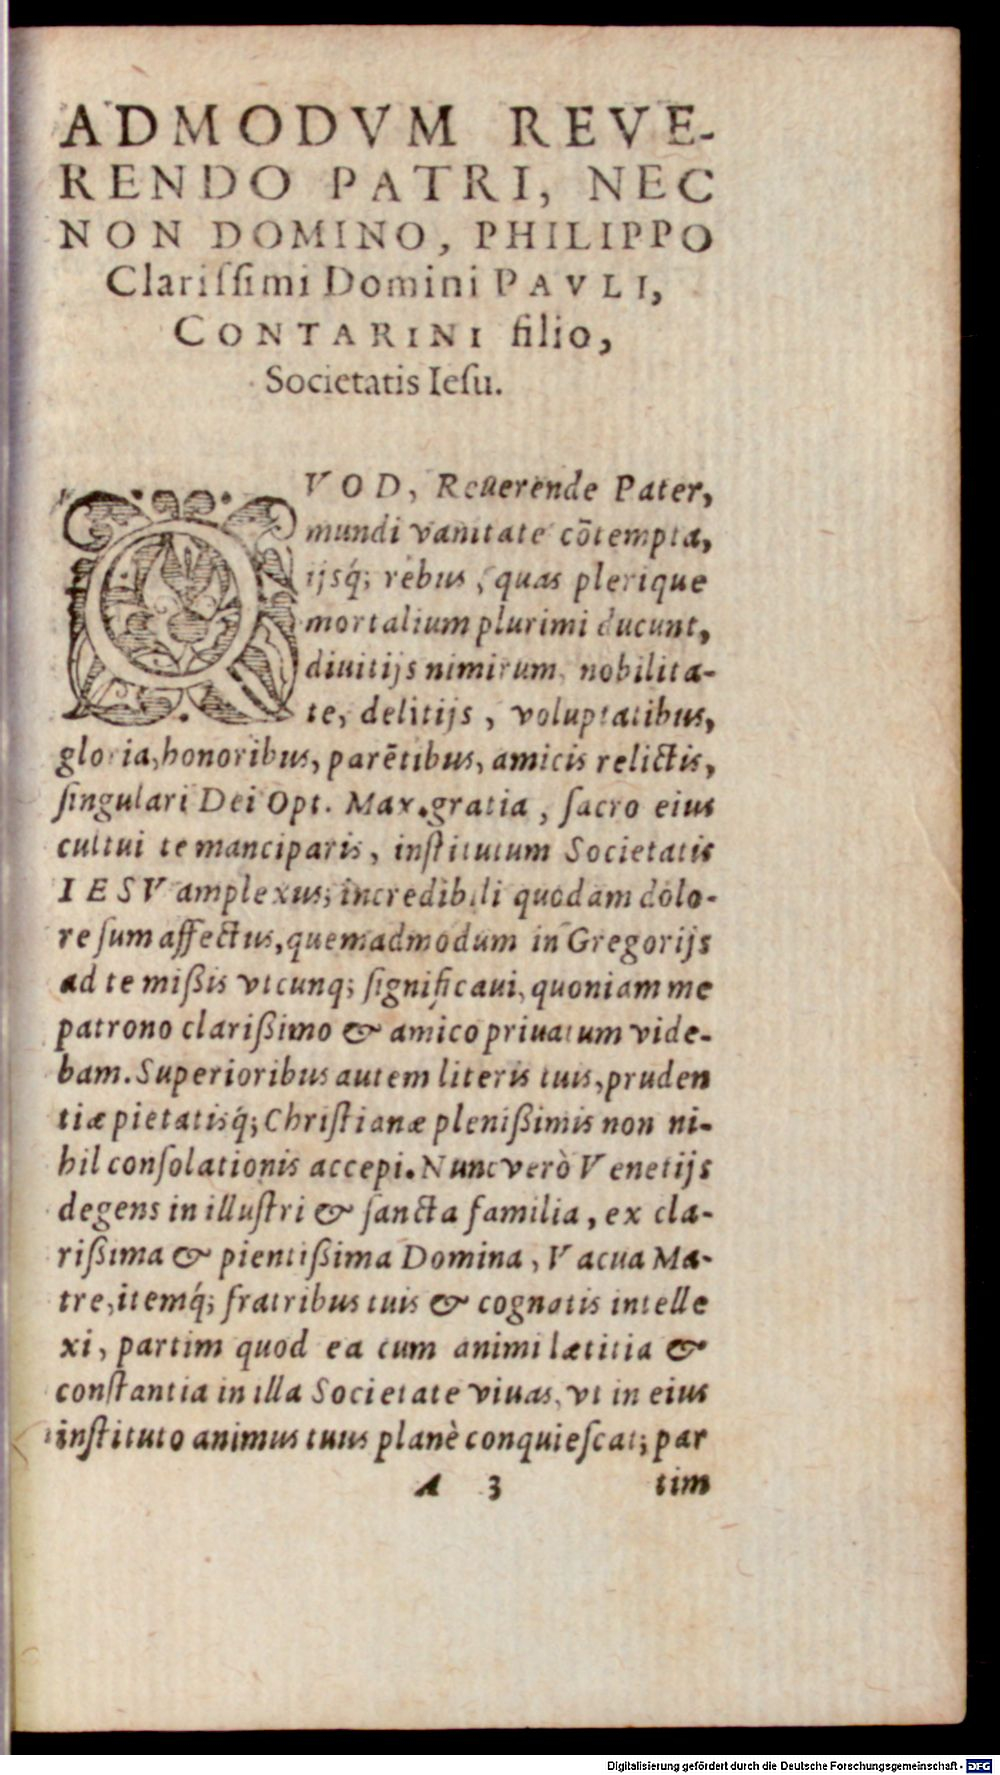 ADMODVM REVE-
RENDO PATRI, NEC
NON DOMINO, PHILIPPO
Clariſſimi Domini PAVLI,
CONTARINI filio,
Societatis Ieſu.
QVOD, Reuerende Pater,
mundi vanitate cõtempta,
ijsq́; rebus, quas plerique
mortalium plurimi ducunt,
diuitijs nimirum, nobilita-
te, delitijs, voluptatibus,
gloria, honoribus, parẽtibus, amicis relictis,
ſingulari Dei Opt. Max. gratia, ſacro eius
cultui te manciparis, inſtitutum Societatis
IESV amplexus; incredibili quodam dolo-
re ſum affectus, quemadmodum in Gregorijs
ad te mißis vtcunq; ſignificaui, quoniam me
patrono clarißimo & amico priuatum vide-
bam. Superioribus autem literis tuis, pruden
tiæ pietatisq́; Chriſtianæ plenißimis non ni-
hil conſolationis accepi. Nunc verò Venetijs
degens in illuſtri & ſancta familia, ex cla-
rißima & pientißima Domina, Vacua Ma-
tre, itemq́; fratribus tuis & cognatis intelle
xi, partim quod ea cum animi lætitia &
conſtantia in illa Societate viuas, vt in eius
inſtituto animus tuus planè conquieſcat; par
A 3 tim
Digitalisierung gefördert durch die Deutsche Forschungsgemeinschaft - DFG